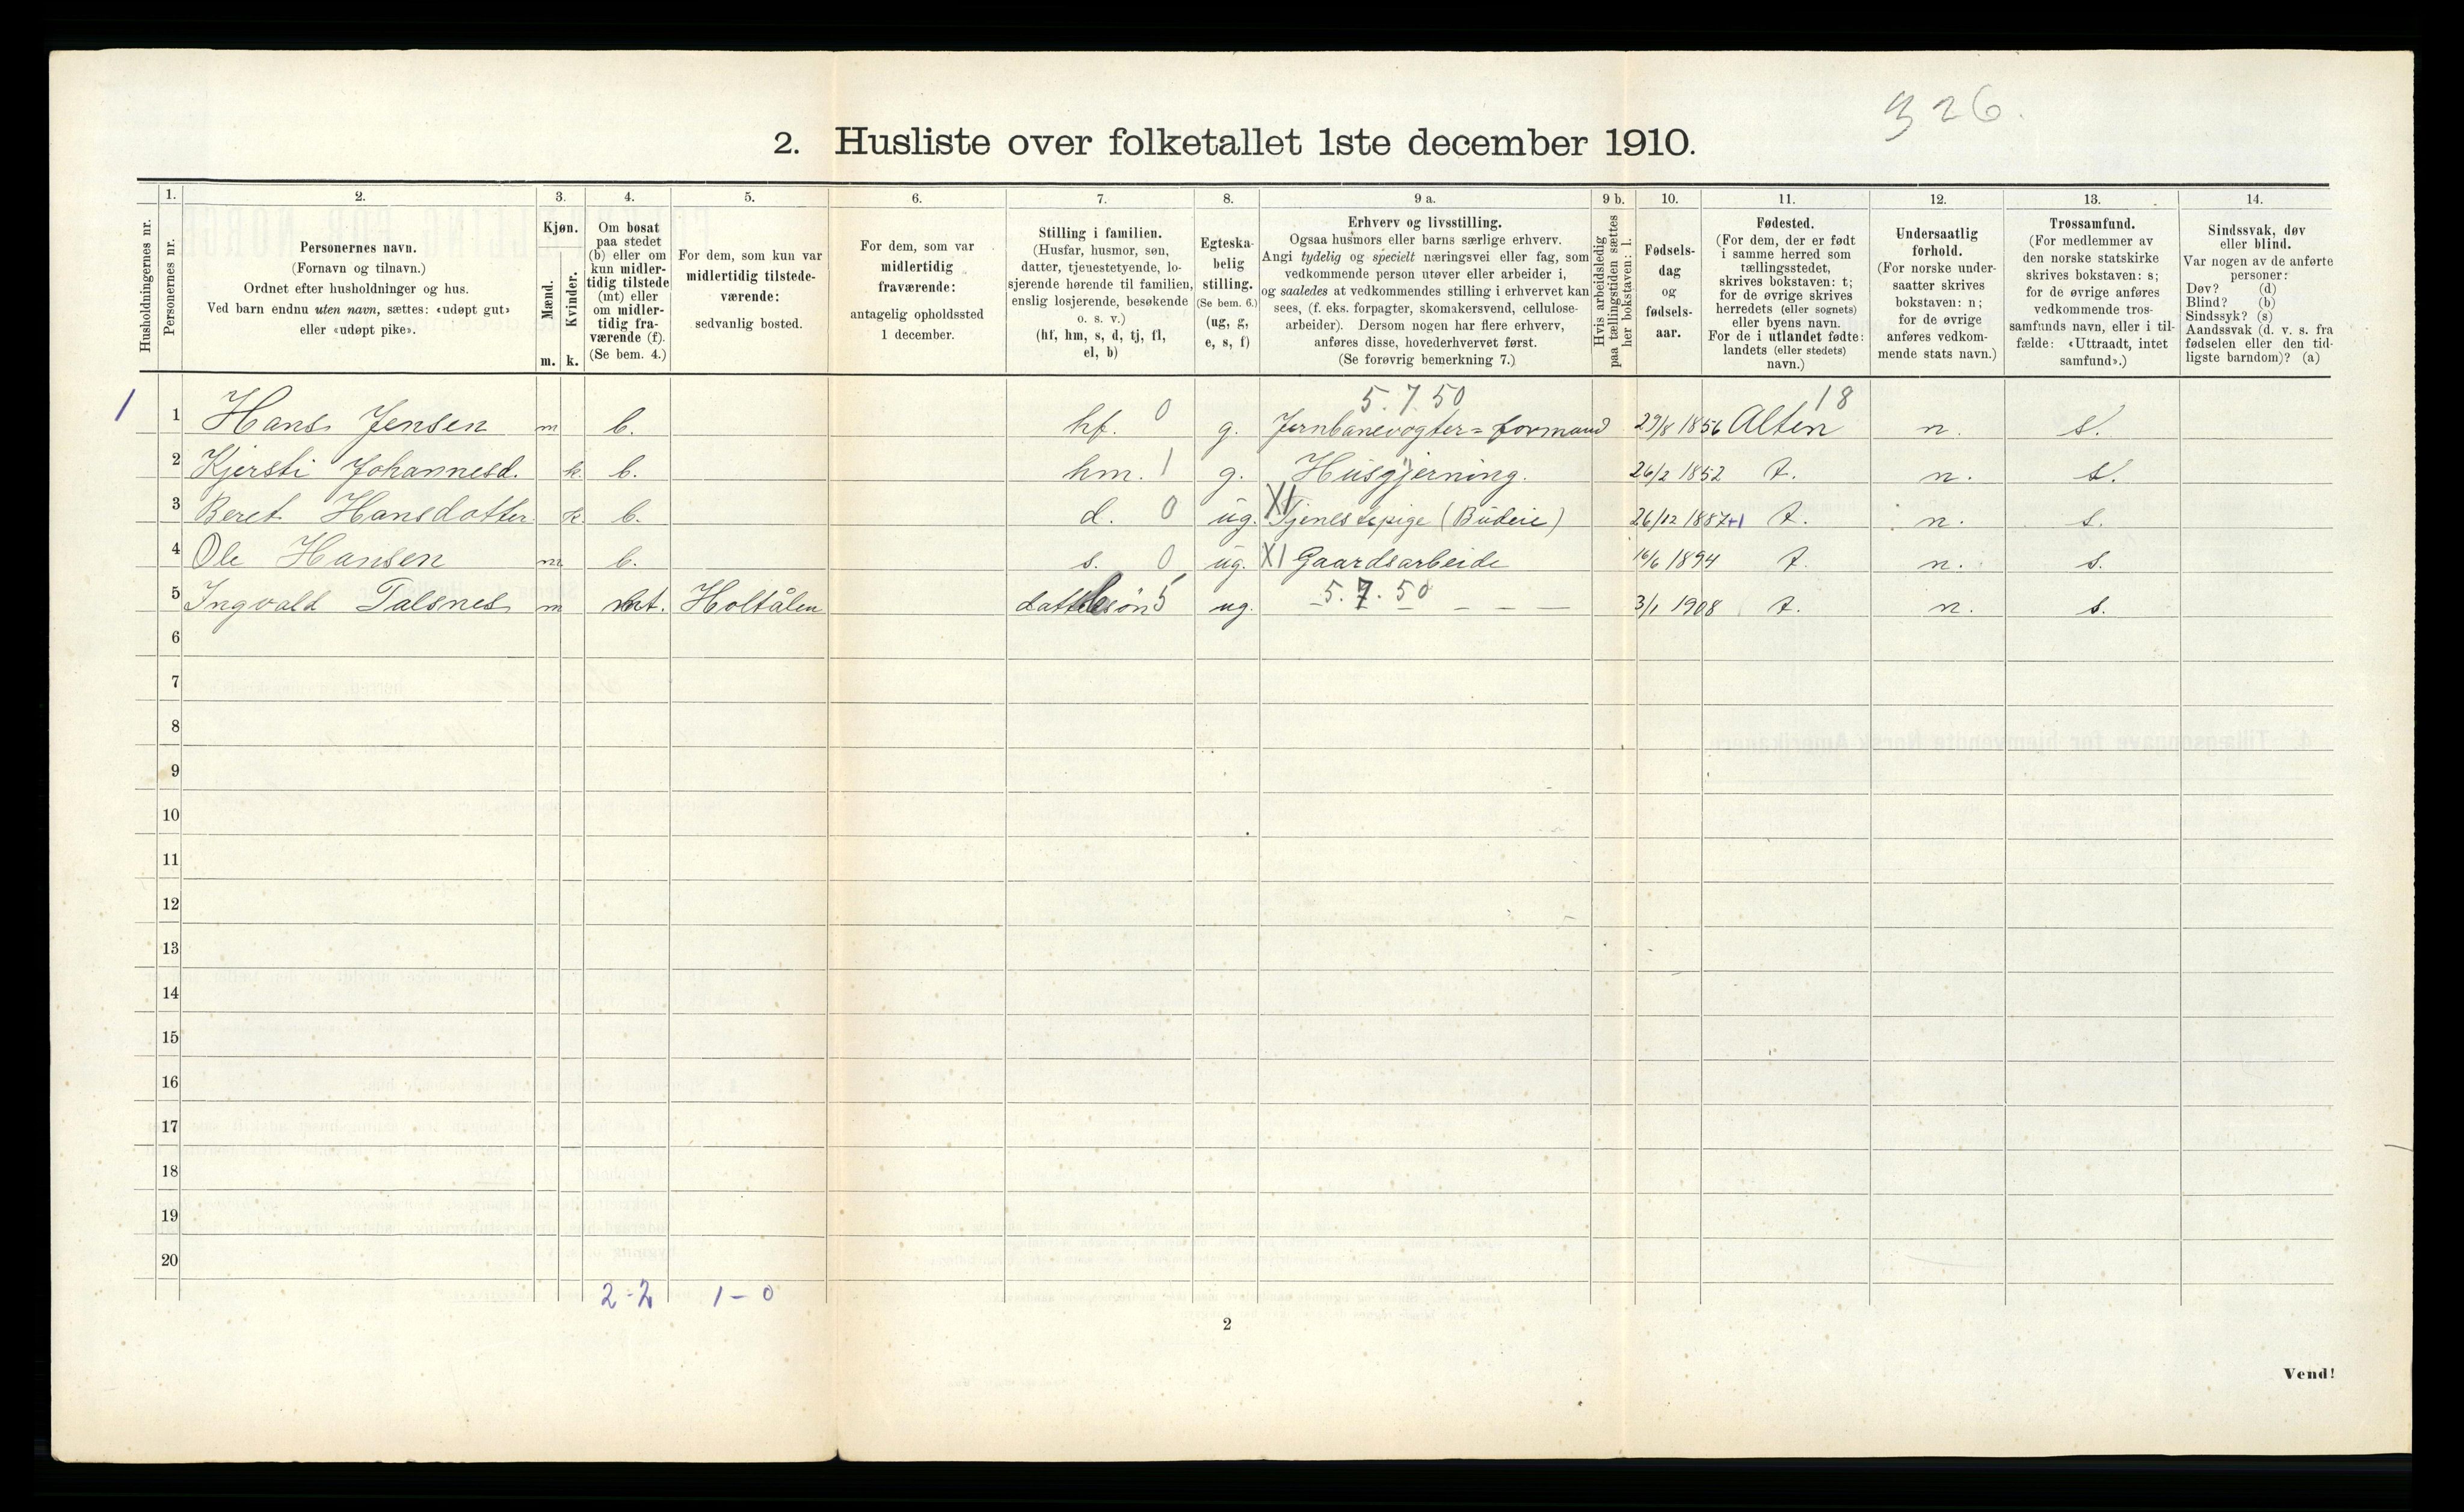 326.
2. Husliste over folketallet 1ste december 1910.
Husholdningernes nr.
1.
Personernes nr.
2.
Personernes navn.
(Fornavn og tilnavn.)
Ordnet efter husholdninger og hus.
Ved barn endnu uten navn, sættes: «udøpt gut»
eller «udøpt pike».
3.
Kjøn.
Mænd.
Kvinder.
m. k.
4.
Om bosat
paa stedet
(b) eller om
kun midler-
tidig tilstede
(mt) eller
om midler-
tidig fra-
værende (f).
(Se bem. 4.)
5.
For dem, som kun var
midlertidig tilstede-
værende:
sedvanlig bosted.
6.
For dem, som var
midlertidig
fraværende:
antagelig opholdssted
1 december.
7.
Stilling i familien.
(Husfar, husmor, søn,
datter, tjenestetyende, lo-
sjerende hørende til familien,
enslig losjerende, besøkende
o. s. v.)
(hf, hm, s, d, tj, fl,
el, b)
8.
Egteska-
belig
stilling.
(Se bem. 6.)
(ug, g,
e, s, f)
9 a.
Erhverv og livsstilling.
Ogsaa husmors eller barns særlige erhverv.
Angi tydelig og specielt næringsvei eller fag, som
vedkommende person utøver eller arbeider i,
og saaledes at vedkommendes stilling i erhvervet kan
sees, (f. eks. forpagter, skomakersvend, cellulose-
arbeider). Dersom nogen har flere erhverv,
anføres disse, hovederhvervet først.
(Se forøvrig bemerkning 7.)
9 b.
Hvis arbeidsledig
paa tællingstiden sættes
her bokstaven: l.
10.
Fødsels-
dag
og
fødsels-
aar.
11.
Fødested.
(For dem, der er født
i samme herred som
tællingsstedet,
skrives bokstaven: t;
for de øvrige skrives
herredets (eller sognets)
eller byens navn.
For de i utlandet fødte:
landets (eller stedets)
navn.)
12.
Undersaatlig
forhold.
(For norske under-
saatter skrives
bokstaven: n;
for de øvrige
anføres vedkom-
mende stats navn.)
13.
Trossamfund.
(For medlemmer av
den norske statskirke
skrives bokstaven: s;
for de øvrige anføres
vedkommende tros-
samfunds navn, eller i til-
fælde: «Uttraadt, intet
samfund».)
14.
Sindssvak, døv
eller blind.
Var nogen av de anførte
personer:
Døv? (d)
Blind? (b)
Sindssyk? (s)
Aandssvak (d. v. s. fra
fødselen eller den tid-
ligste barndom)? (a)
5.7.50 18
1 1 Hans Jensen m b. hf. 0 g. Jernbanevogter=formand 29/8 1856 Alten n. s.
2 Kjersti Johannesd. k. b. hm. 1 g. Husgjerning. 26/2 1852 t. n. s.
3 Beret Hansdatter k. b. d. 0 ug. XI Tjenestepige (Budeie) 26/12 1887+1 t. n. s.
4 Ole Hansen m b. s. 0 ug. XI Gaardsarbeide 16/6 1894 t. n. s.
5 Ingvald Talsnes m mt. Holtålen dattesøn 5 ug. 5.7.50 3/1 1908 t. n. s.
6
7
8
9
10
11
12
13
14
15
16
17
18
19
20
2-2 1-0
2
Vend!